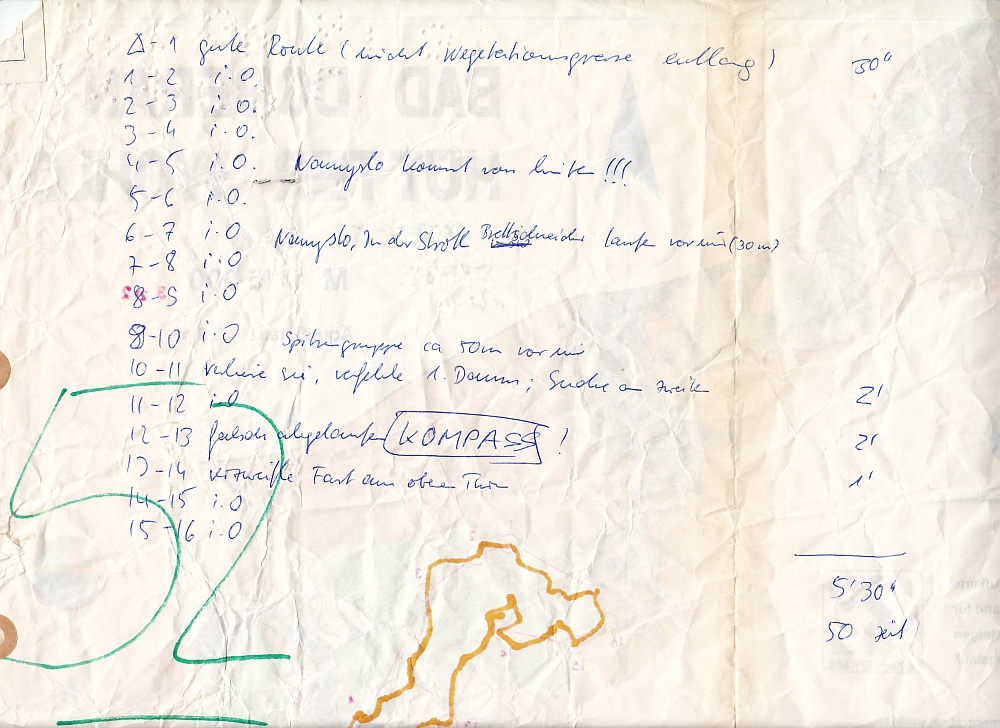 Δ-1 gute Route (nicht Vegetationsgrenze entlang) 30"
1-2 i.O.
2-3 i.O.
3-4 i.O.
4-5 i.O. Namyslo kommt von links !!!
5-6 i.O.
6-7 i.O Namyslo, In der Stroth Bretschneider laufen vor mir (30m)
7-8 i.O
8-9 i.O
9-10 i.O Spitzengruppe ca 50m vor mir
10-11 verliere sie, verfehle 1. Damm; Suche am zweiten 2'
11-12 i.O
12-13 falsch abgelaufen KOMPASS ! 2'
13-14 verzweifle Fast am oberen 1'
14-15 i.O
15-16 i.O
5'30"
50 Zeit
52